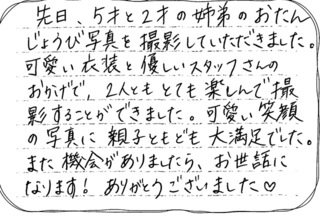 先日、5才と2才の姉弟のおたん
じょうび写真を撮影していただきました。
可愛い衣装と優しいスタッフさんの
おかげで、2人ともとても楽しんで撮
影することができました。可愛い笑顔
の写真に親子ともども大満足でした。
また機会がありましたら、お世話に
なります！ありがとうございました♡